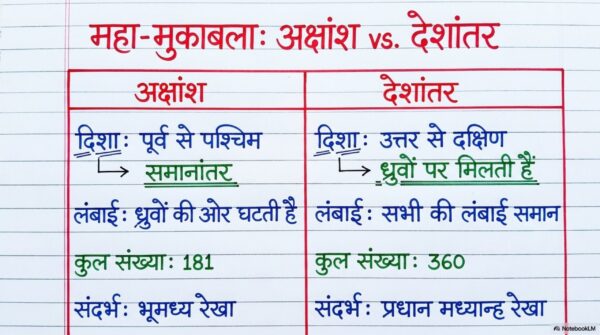 महा-मुकाबला: अक्षांश vs. देशांतर
अक्षांश
देशांतर
दिशा: पूर्व से पश्चिम
समानांतर
लंबाई: ध्रुवों की ओर घटती है
कुल संख्या: 181
संदर्भ: भूमध्य रेखा
दिशा: उत्तर से दक्षिण
ध्रुवों पर मिलती हैं
लंबाई: सभी की लंबाई समान
कुल संख्या: 360
संदर्भ: प्रधान मध्यान्ह रेखा
NotebookLM